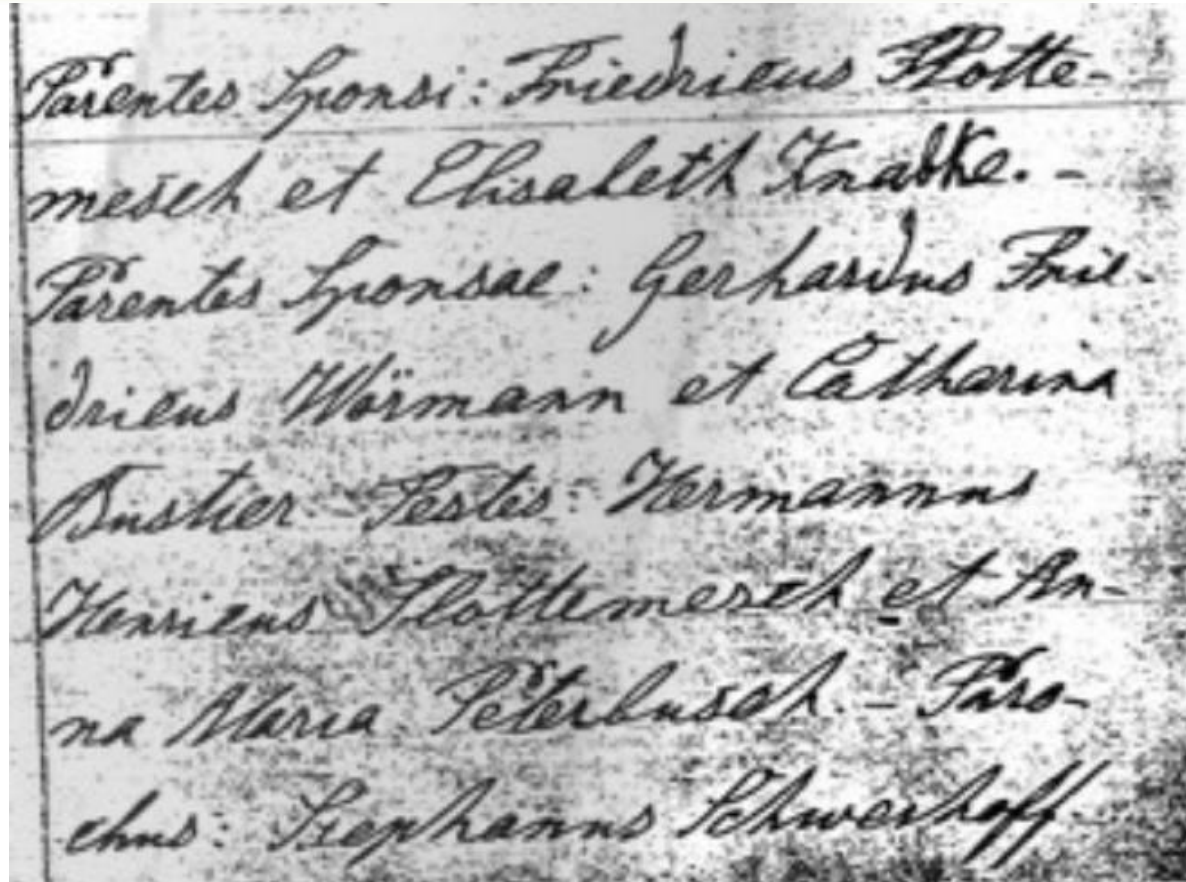 Parentes Sponsi: Friedricus Plotte-
mesch et Elisabeth Knabke. -
Parentes Sponsae: Gerhardus Frie-
dricus Wörmann et Catharina
Bustier Testes: Hermannus
Henricus Plottemesch et An-
na Maria Peterbusch. - Paro-
chus: Stephanus Schwerhoff